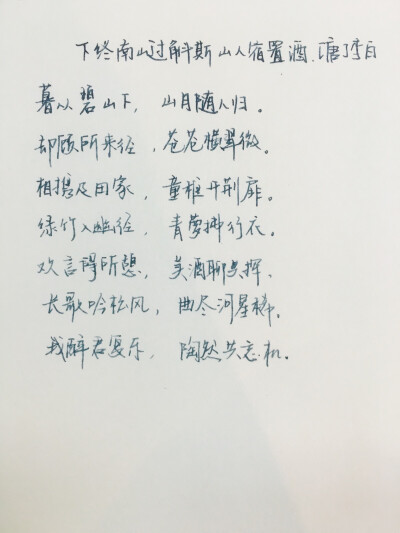 下终南山过斛斯山人宿置酒.唐李白
暮从碧山下，山月随人归。
却顾所来径，苍苍横翠微。
相携及田家，童稚开荆扉。
绿竹入幽径，青萝拂行衣。
欢言得所憩，美酒聊共挥。
长歌吟松风，曲尽河星稀。
我醉君复乐，陶然共忘机。